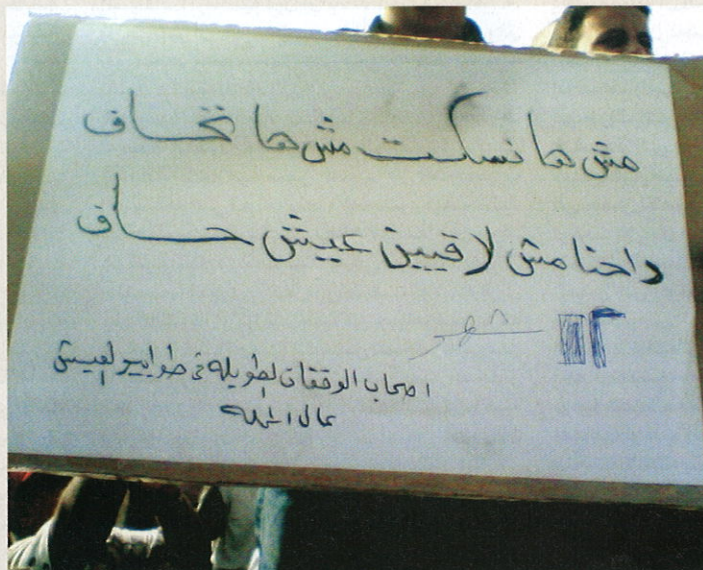 مش ها نسكت مش ها نخاف
داحنا مش لاقيين عييش حاف
شهر
اصحاب الوقفات الطويله في طوابير العيش
عمال المحله